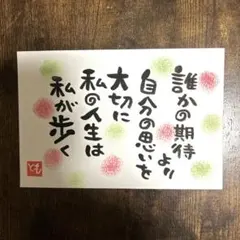 誰かの期待
より
自分の思いを
大切に
私の人生は
私が歩く
とも